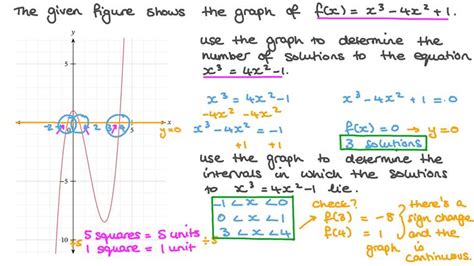 The given figure shows the graph of f(x) = x³ - 4x² + 1.
use the graph to determine the
number of solutions to the equation
x³ = 4x² - 1.
x³ = 4x² - 1
-4x² -4x²
x³ - 4x² = -1
+1 +1
x³ - 4x² + 1 = 0
f(x) = 0 → y = 0
3 solutions
use the graph to determine the
intervals in which the solutions
to x³ = 4x² - 1 lie.
-1 < x < 0
0 < x < 1
3 < x < 4
check?
f(3) = -8
f(4) = 1
there's a
sign change
and the
graph is
continuous.
y
5
-2
0
3
4
5
x
y=0
-5
-10
÷5
5 squares = 5 units
1 square = 1 unit
÷5